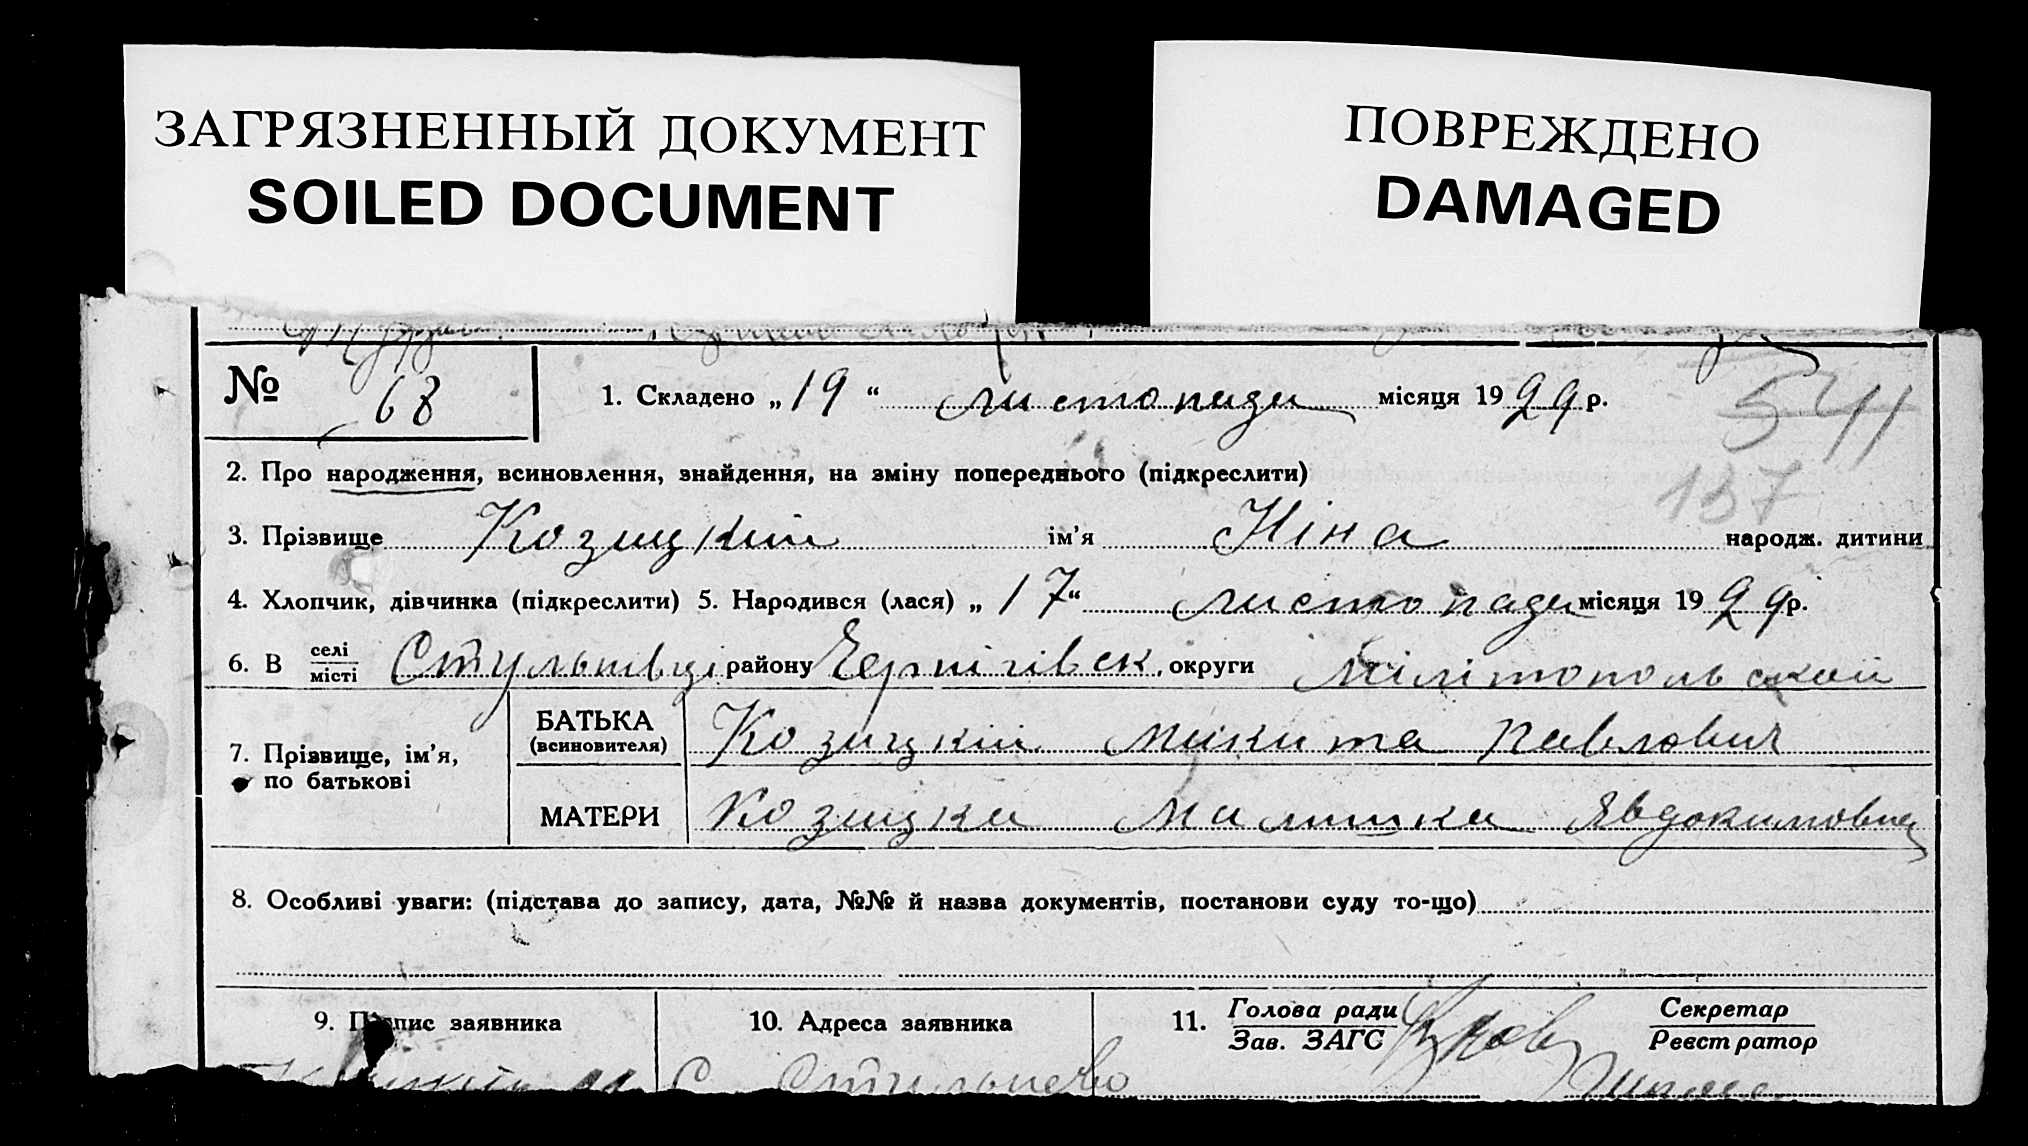 ЗАГРЯЗНЕННЫЙ ДОКУМЕНТ
SOILED DOCUMENT
ПОВРЕЖДЕНО
DAMAGED
№ 68
1. Складено „19“ листопада місяця 1929 р.
541
2. Про народження, всиновлення, знайдення, на зміну попереднього (підкреслити)
137
3. Прізвище Козицкий ім'я Ніна народж. дитини
4. Хлопчик, дівчинка (підкреслити) 5. Народився (лася) „17“ листопада місяця 1929 р.
6. В селі/місті Стульнівці району Чернігівск. округи Мілітопольской
7. Прізвище, ім'я, по батькові
БАТЬКА (всиновителя) Козицкий Микита Павлович
МАТЕРИ Козицка Явдокимовна
8. Особливі уваги: (підстава до запису, дата, №№ й назва документів, постанови суду то-що)
9. Підпис заявника
10. Адреса заявника
11. Голова ради/Зав. ЗАГС
Секретар/Реєстратор
С.